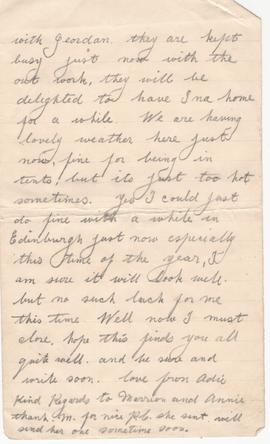 with Geordan. they are kept
busy just now with the
out work, they will be
delighted to have Ina home
for a while. We are having
lovely weather here just
now, fine for being in
tents, but its just too hot
sometimes. yes I could just
do fine with a while in
Edinburgh just now especially
this time of the year, I
am sure it will look well.
but no such luck for me
this time. Well now I must
close, hope this finds you all
quite well. and be sure and
write soon. love from Adie
Kind Regards to Marrion and Annie
thank M. for nice P.C. she sent will
send her one sometime soon.